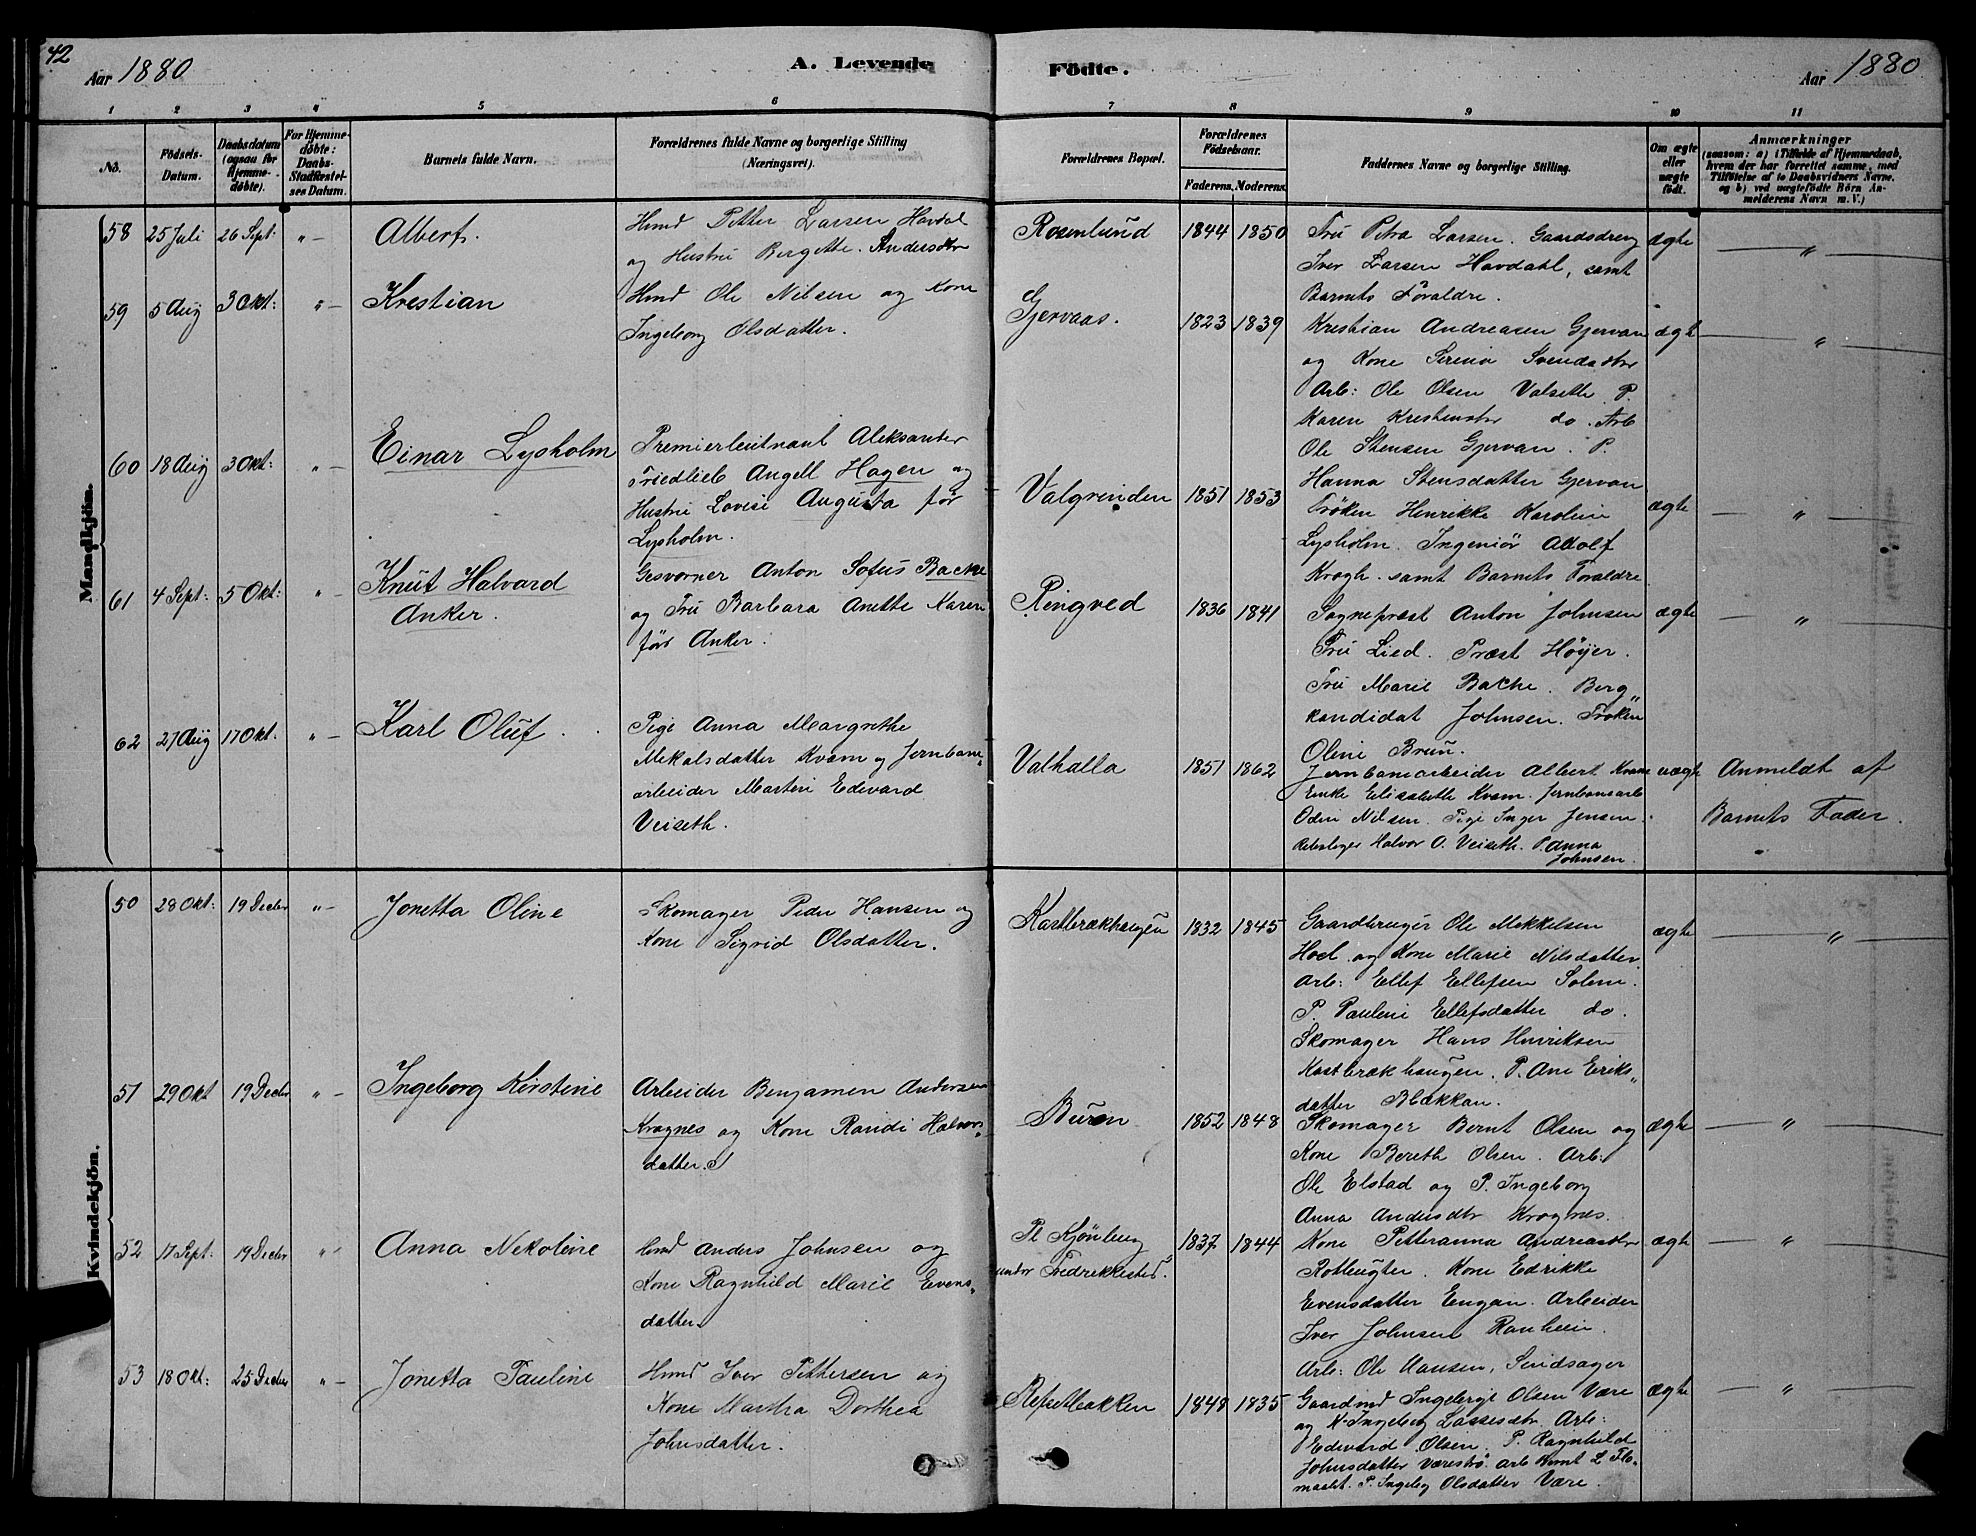 42
Aar 1880
A. Levende
Födte.
Aar 1880
1 2 3 4 5 6 7 8 9 10 11
No.
Födsels-
Datum.
Daabsdatum
(ogsaa for
Hjemme-
döbte).
For Hjemme-
döbte:
Daabs-
Stadfæstel-
ses Datum.
Barnets fulde Navn.
Forældrenes fulde Navne og borgerlige Stilling
(Næringsvei).
Forældrenes Bopæl.
Forældrenes
Födselsaar.
Faderens. Moderens.
Faddernes Navne og borgerlige Stilling.
Om ægte
eller
uægte
födt.
Anmærkninger
(saasom: a) i Tilfælde af Hjemmedaab,
hvem der har forrettet samme, med
Tilföielse af to Daabsvidners Navne,
og b) ved uægtefödte Börn An-
melderens Navn m. V.)
Mandkjön.
58 25 Juli 26 Sept: " —
Albert.
Hmd Petter Larsen Havdal
og Hustru Bergitte Andersdtr
Rosenlund
1844 1850
Fru Petra Larsen. Gaardsdreng
Iver Larsen Havdahl, samt
Barnets Forældre.
ægte
— " —
59 5 Aug 3 Okt: " —
Krestian
Hmd Ole Nilsen og Kone
Ingeborg Olsdatter.
Gjervaas.
1823 1839
Kristian Andreasen Gjervan
og Kone Serina Svendsdtr
Arb: Ole Olsen Valsette P.
Karen Krestensdtr do. Arb
Ole Stensen Gjervan. P.
Hanna Stensdatter Gjervan
ægte
— " —
60 18 Aug 3 Okt: " —
Einar Lysholm
Premierleutnant Aleksander
Friedlieb Angell Hagen og
Hustru Lovise Augusta før
Lysholm.
Valgrinden
1851 1853
Frøken Henrikke Karoline
Lysholm. Ingeniør Adolf
Krogh. samt Barnets Forældre
ægte
— " —
61 4 Sept: 5 Okt: " —
Knut Halvard
Anker.
Gesvorner Anton Sofus Bache
og Fru Barbara Anette Karen
før Anker.
Ringved
1836 1841
Sognepræst Anton Johnsen
Fru Lied. Præst Høyer.
Fru Marie Bache. Berg„
kandidat Johnsen. Frøken
Oline Brun.
ægte
— " —
62 27 Aug 17 Okt. " —
Karl Oluf.
Pige Anna Margrethe
Mekalsdatter Kvam og Jernbane„
arbeider Martin Edevard
Veiseth.
Valhalla
1851 1862
Jernbanearbeider Albert Kvam
Enke Elisabeth Kvam. Jernbanearb
Oden Nilsen. Pige Inger Jensen.
Halvor O. Veiseth. P. Anna
Johnsen.
uægte
Anmeldt af
Barnets Fader.
Kvindekjön.
50 28 Okt: 19 Decbr " —
Jonetta Oline
Skomager Peder Hansen og
Kone Sigrid Olsdatter.
Kastbrækhaugen
1832 1845
Gaardbruger Ole Mekkelsen
Hoel og Kone Marie Nilsdatter.
Arb: Ellef Ellefsen Solem.
P. Pauline Ellefsdatter do.
Skomager Hans Henriksen
Kastbrækhaugen. P. Ane Eriks„
datter Blækkan.
ægte
— " —
51 29 Okt 19 Decbr " —
Ingeborg Kirstine
Arbeider Benjamin Andersen
Krognes og Kone Randi Halvors„
datter.
Buran
1852 1848
Skomager Bernt Olsen og
Kone Bereth Olsen. Arb:
Ole Elstad og P. Ingeborg
Anna Andersdtr Krognes.
ægte
— " —
52 17 Sept. 19 Decbr " —
Anna Nekoline
Hmd Anders Johnsen og
Kone Ragnhild Marie Evens„
datter.
Pl Kjønberg
under Fredrekkested.
1837 1844
Kone Petteranna Andreasdtr
Rotbugter. Kone Edrikke
Evensdatter Engan. Arbeider
Iver Johnsen Ranheim.
Arb: Ole Hansen, Sindsager
ægte
— " —
53 18 Okt: 25 Decbr " —
Jonetta Pauline
Hmd Iver Pettersen og
Kone Martha Dorthea
Johnsdatter.
Refsetbakken
1848 1835
Gaardmd Ingebrigt Olsen Være
og K. Ingeborg Lassesdtr. Arb:
Edevard Olsen. P. Ragnhild
Johnsdatter Værestrø. Arb Bernt L Flo„
maalet. P. Ingeborg Olsdatter Være.
ægte
— " —